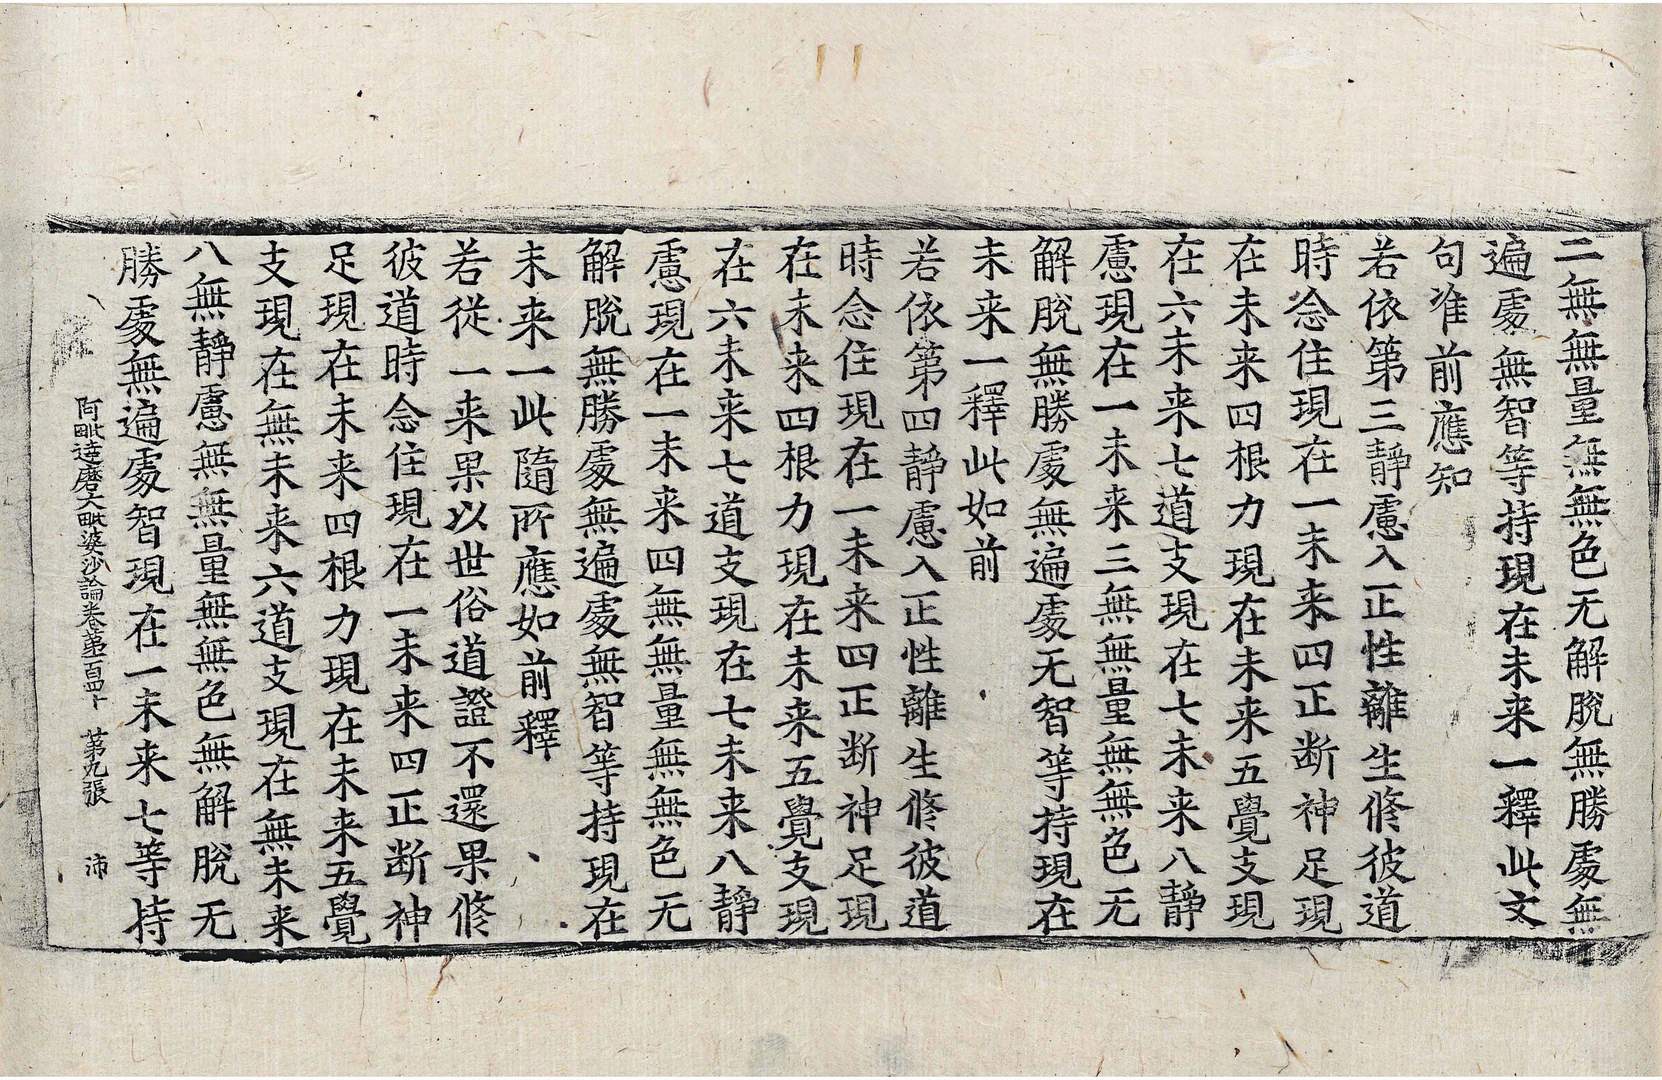 二無無量無無色无解脫無勝處無
遍處無智等持現在未来一釋此文
句准前應知
若依第三靜慮入正性離生修彼道
時念住現在一未来四正断神足現
在未来四根力現在未来五覺支現
在六未来七道支現在七未来八靜
慮現在一未来三無無量無無色无
解脫無勝處無遍處无智等持現在
未来一釋此如前
若依第四靜慮入正性離生修彼道
時念住現在一未来四正断神足現
在未来四根力現在未来五覺支現
在六未来七道支現在七未来八靜
慮現在一未来四無無量無無色无
解脫無勝處無遍處無智等持現在
未来一此隨所應如前釋
若從一来果以世俗道證不還果修
彼道時念住現在一未来四正断神
足現在未来四根力現在未来五覺
支現在無未来六道支現在無未来
八無靜慮無無量無無色無解脫无
勝處無遍處智現在一未来七等持
阿毗達磨大毗婆沙論卷第一百四十 第九張 沛